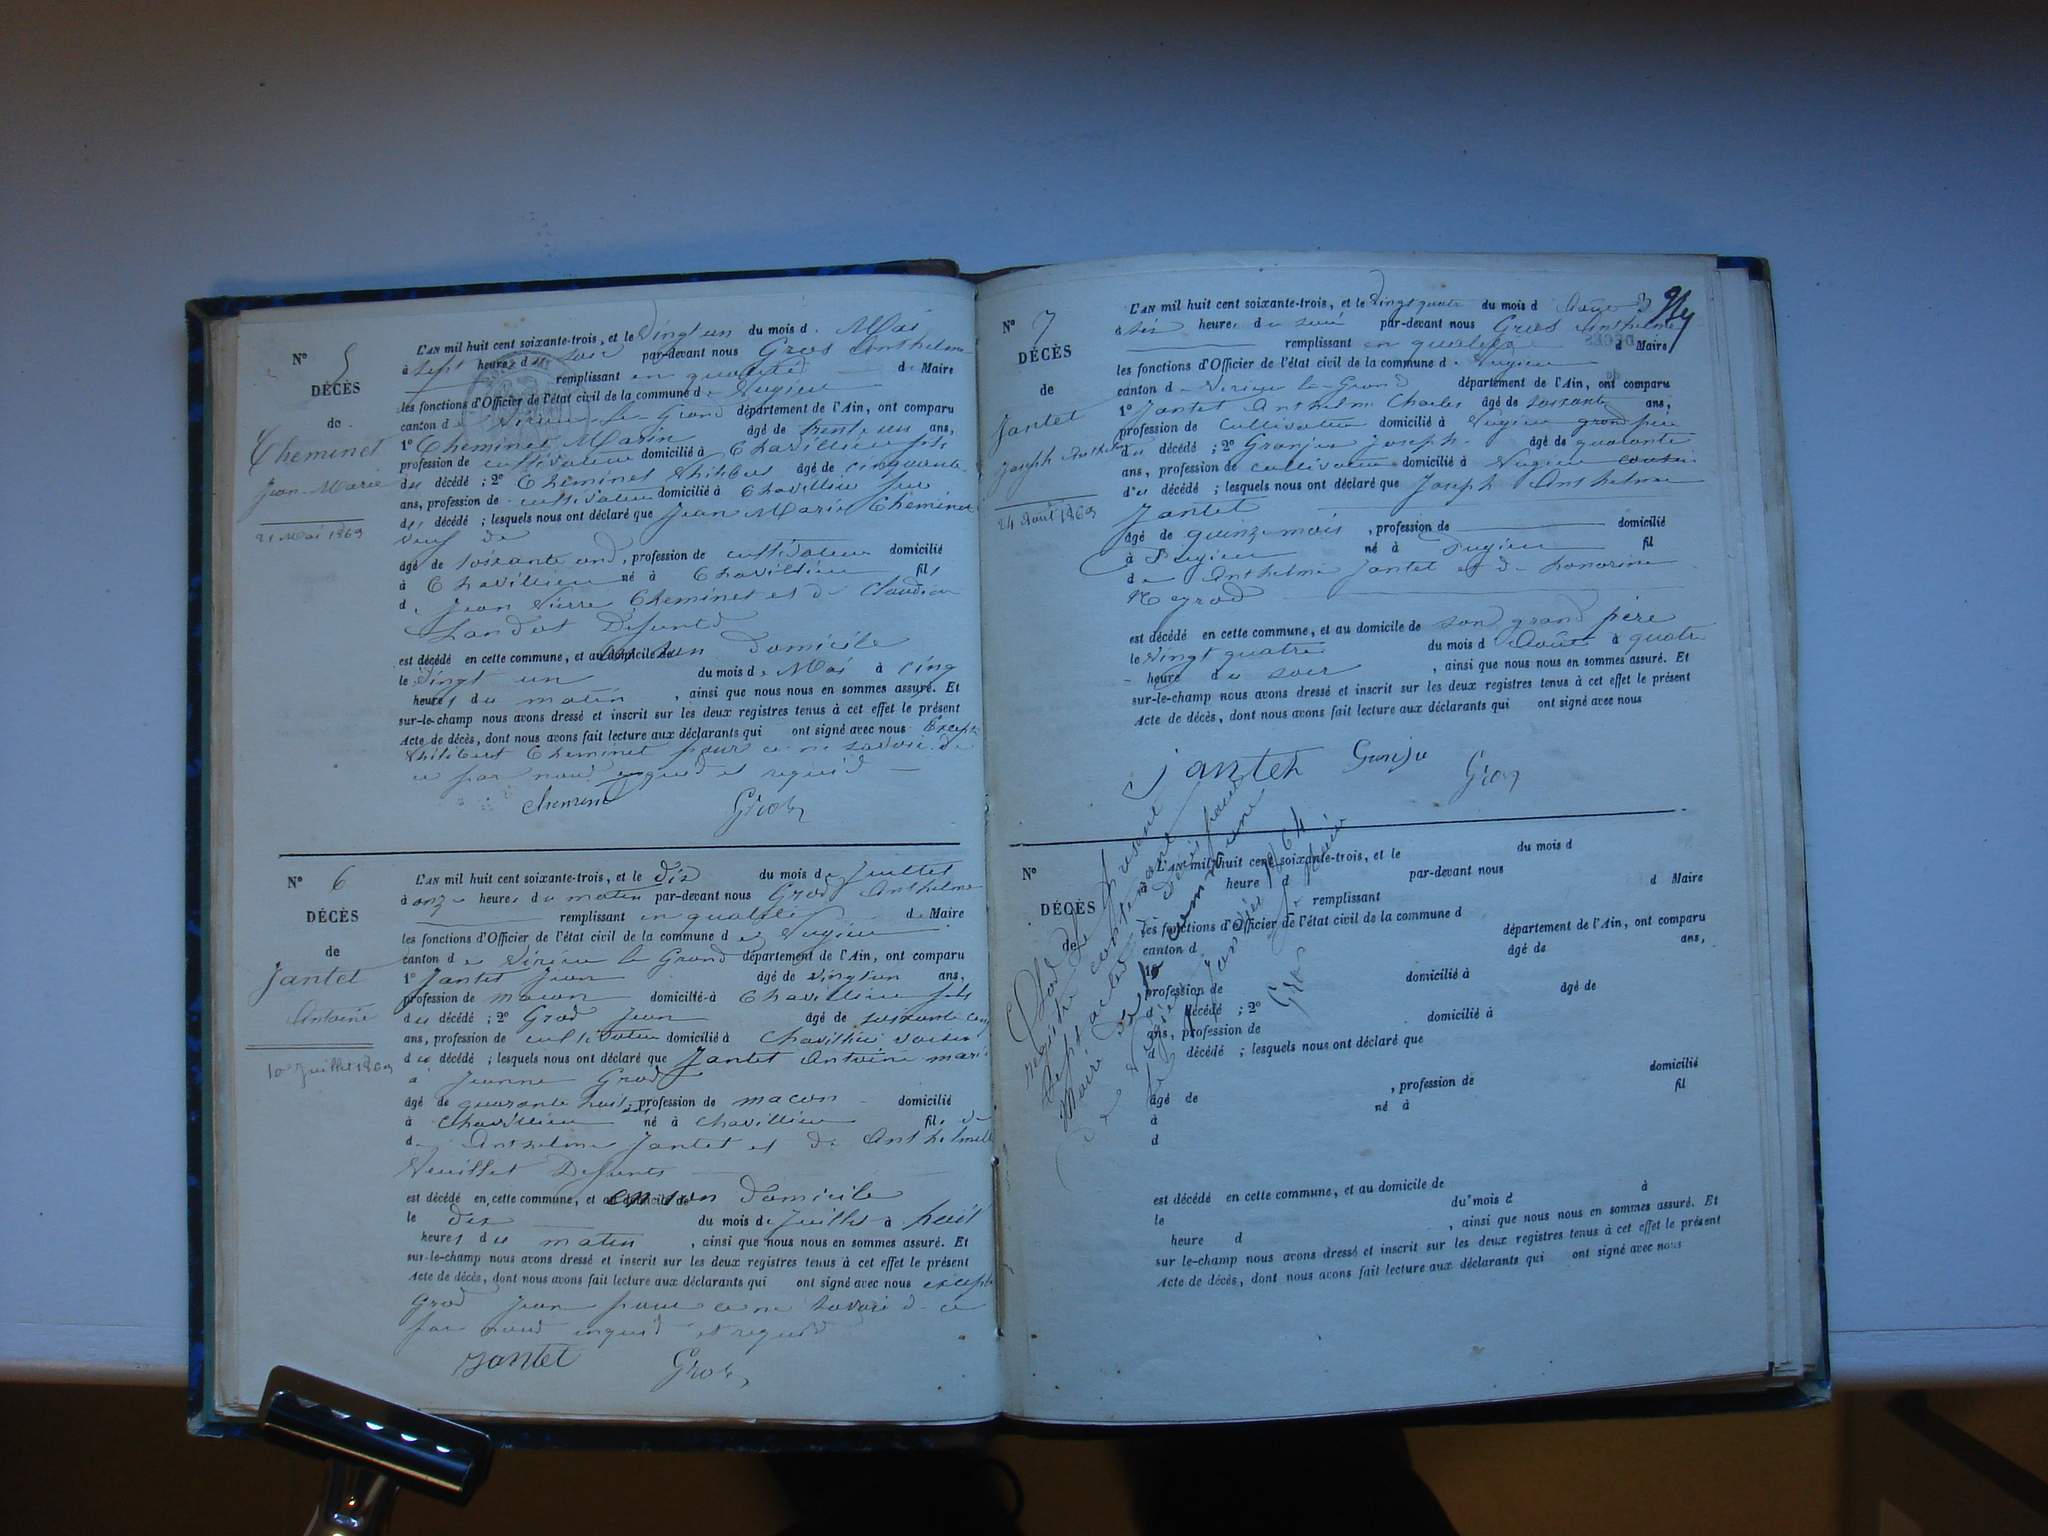 N° 5
DÉCÈS
de
Cheminet
Jean-Marie
21 Mai 1863
L'AN mil huit cent soixante-trois, et le vingt un du mois d. Mai
à sept heures du soir par-devant nous Gros Anthelme
remplissant en qualité d. Maire
les fonctions d'Officier de l'état civil de la commune d. Pugieu
canton d. Virieu le Grand département de l'Ain, ont comparu
1° Cheminet Marin âgé de trente un ans,
profession de cultivateur domicilié à Chavillieu fils
du décédé ; 2° Cheminet Philibert âgé de cinquante
ans, profession de cultivateur domicilié à Chavillieu
du décédé ; lesquels nous ont déclaré que Jean Marie Cheminet
veuf de
âgé de soixante ans, profession de cultivateur domicilié
à Chavillieu né à Chavillieu fils
d. Jean Pierre Cheminet et de Claudine
Landot Defunts
est décédé en cette commune, et au domicile de en son domicile
le vingt un du mois de Mai à cinq
heures du matin, ainsi que nous nous en sommes assuré. Et
sur-le-champ nous avons dressé et inscrit sur les deux registres tenus à cet effet le présent
Acte de décès, dont nous avons fait lecture aux déclarants qui ont signé avec nous Excepté
Philibert Cheminet pour ce ne savoir de
ce par nous enquis et requis
cheminet Gros
N° 6
DÉCÈS
de
Jantet
Antoine
10 Juillet 1863
L'AN mil huit cent soixante-trois, et le dix du mois de Juillet
à onze heures du matin par-devant nous Gros Anthelme
remplissant en qualité d. Maire
les fonctions d'Officier de l'état civil de la commune de Pugieu
canton de Virieu le Grand département de l'Ain, ont comparu
1° Jantet Jean âgé de vingt un ans,
profession de macon domicilié à Chavillieu fils
du décédé ; 2° Gros Jean âgé de soixante cinq
ans, profession de cultivateur domicilié à Chavillieu voisin
du décédé ; lesquels nous ont déclaré que Jantet Antoine marié
a Jeanne Gros
âgé de quarante huit ans profession de macon domicilié
à Chavillieu né à Chavillieu fils de
d. Anthelme Jantet et de Anthelmette
Veuillet Defunts
est décédé en cette commune, et au domicile de en son domicile
le dix du mois de Juillet à huit
heures du matin, ainsi que nous nous en sommes assuré. Et
sur-le-champ nous avons dressé et inscrit sur les deux registres tenus à cet effet le présent
Acte de décès, dont nous avons fait lecture aux déclarants qui ont signé avec nous excepté
Gros Jean pour ce ne savoir de ce
par nous enquis et requis
Jantet Gros
N° 7
DÉCÈS
de
Jantet
Joseph Anthelme
24 Août 1863
L'AN mil huit cent soixante-trois, et le vingt quatre du mois d Août
à six heures du soir par-devant nous Gros Anthelme
remplissant en qualité d Maire
les fonctions d'Officier de l'état civil de la commune de Pugieu
canton de Virieu le Grand département de l'Ain, ont comparu
1° Jantet Anthelme Charles âgé de soixante ans,
profession de Cultivateur domicilié à Pugieu grand père
du décédé ; 2° Granjeu Joseph âgé de quarante
ans, profession de cultivateur domicilié à Pugieu cousin
du décédé ; lesquels nous ont déclaré que Joseph Anthelme
Jantet
âgé de quinze mois, profession de domicilié
à Pugieu né à Pugieu fil
de Anthelme Jantet et de honorine
Neyrod
est décédé en cette commune, et au domicile de son grand père
le vingt quatre du mois d Août à quatre
heure du soir, ainsi que nous nous en sommes assuré. Et
sur-le-champ nous avons dressé et inscrit sur les deux registres tenus à cet effet le présent
Acte de décès, dont nous avons fait lecture aux déclarants qui ont signé avec nous
Jantet Gros
N°
DÉCÈS
de
L'AN mil huit cent soixante-trois, et le du mois d
à heure d par-devant nous
remplissant d Maire
les fonctions d'Officier de l'état civil de la commune d
canton d département de l'Ain, ont comparu
1° âgé de ans,
profession de domicilié à
d décédé ; 2° âgé de
ans, profession de domicilié à
d décédé ; lesquels nous ont déclaré que
âgé de , profession de domicilié
à né à fil
d
est décédé en cette commune, et au domicile de
le du mois d à
heure d , ainsi que nous nous en sommes assuré. Et
sur le-champ nous avons dressé et inscrit sur les deux registres tenus à cet effet le présent
Acte de décès, dont nous avons fait lecture aux déclarants qui ont signé avec nous
le présent
registre contenant
sept actes
Maire de la commune
de Pugieu Janvier 1864
le Maire
Gros